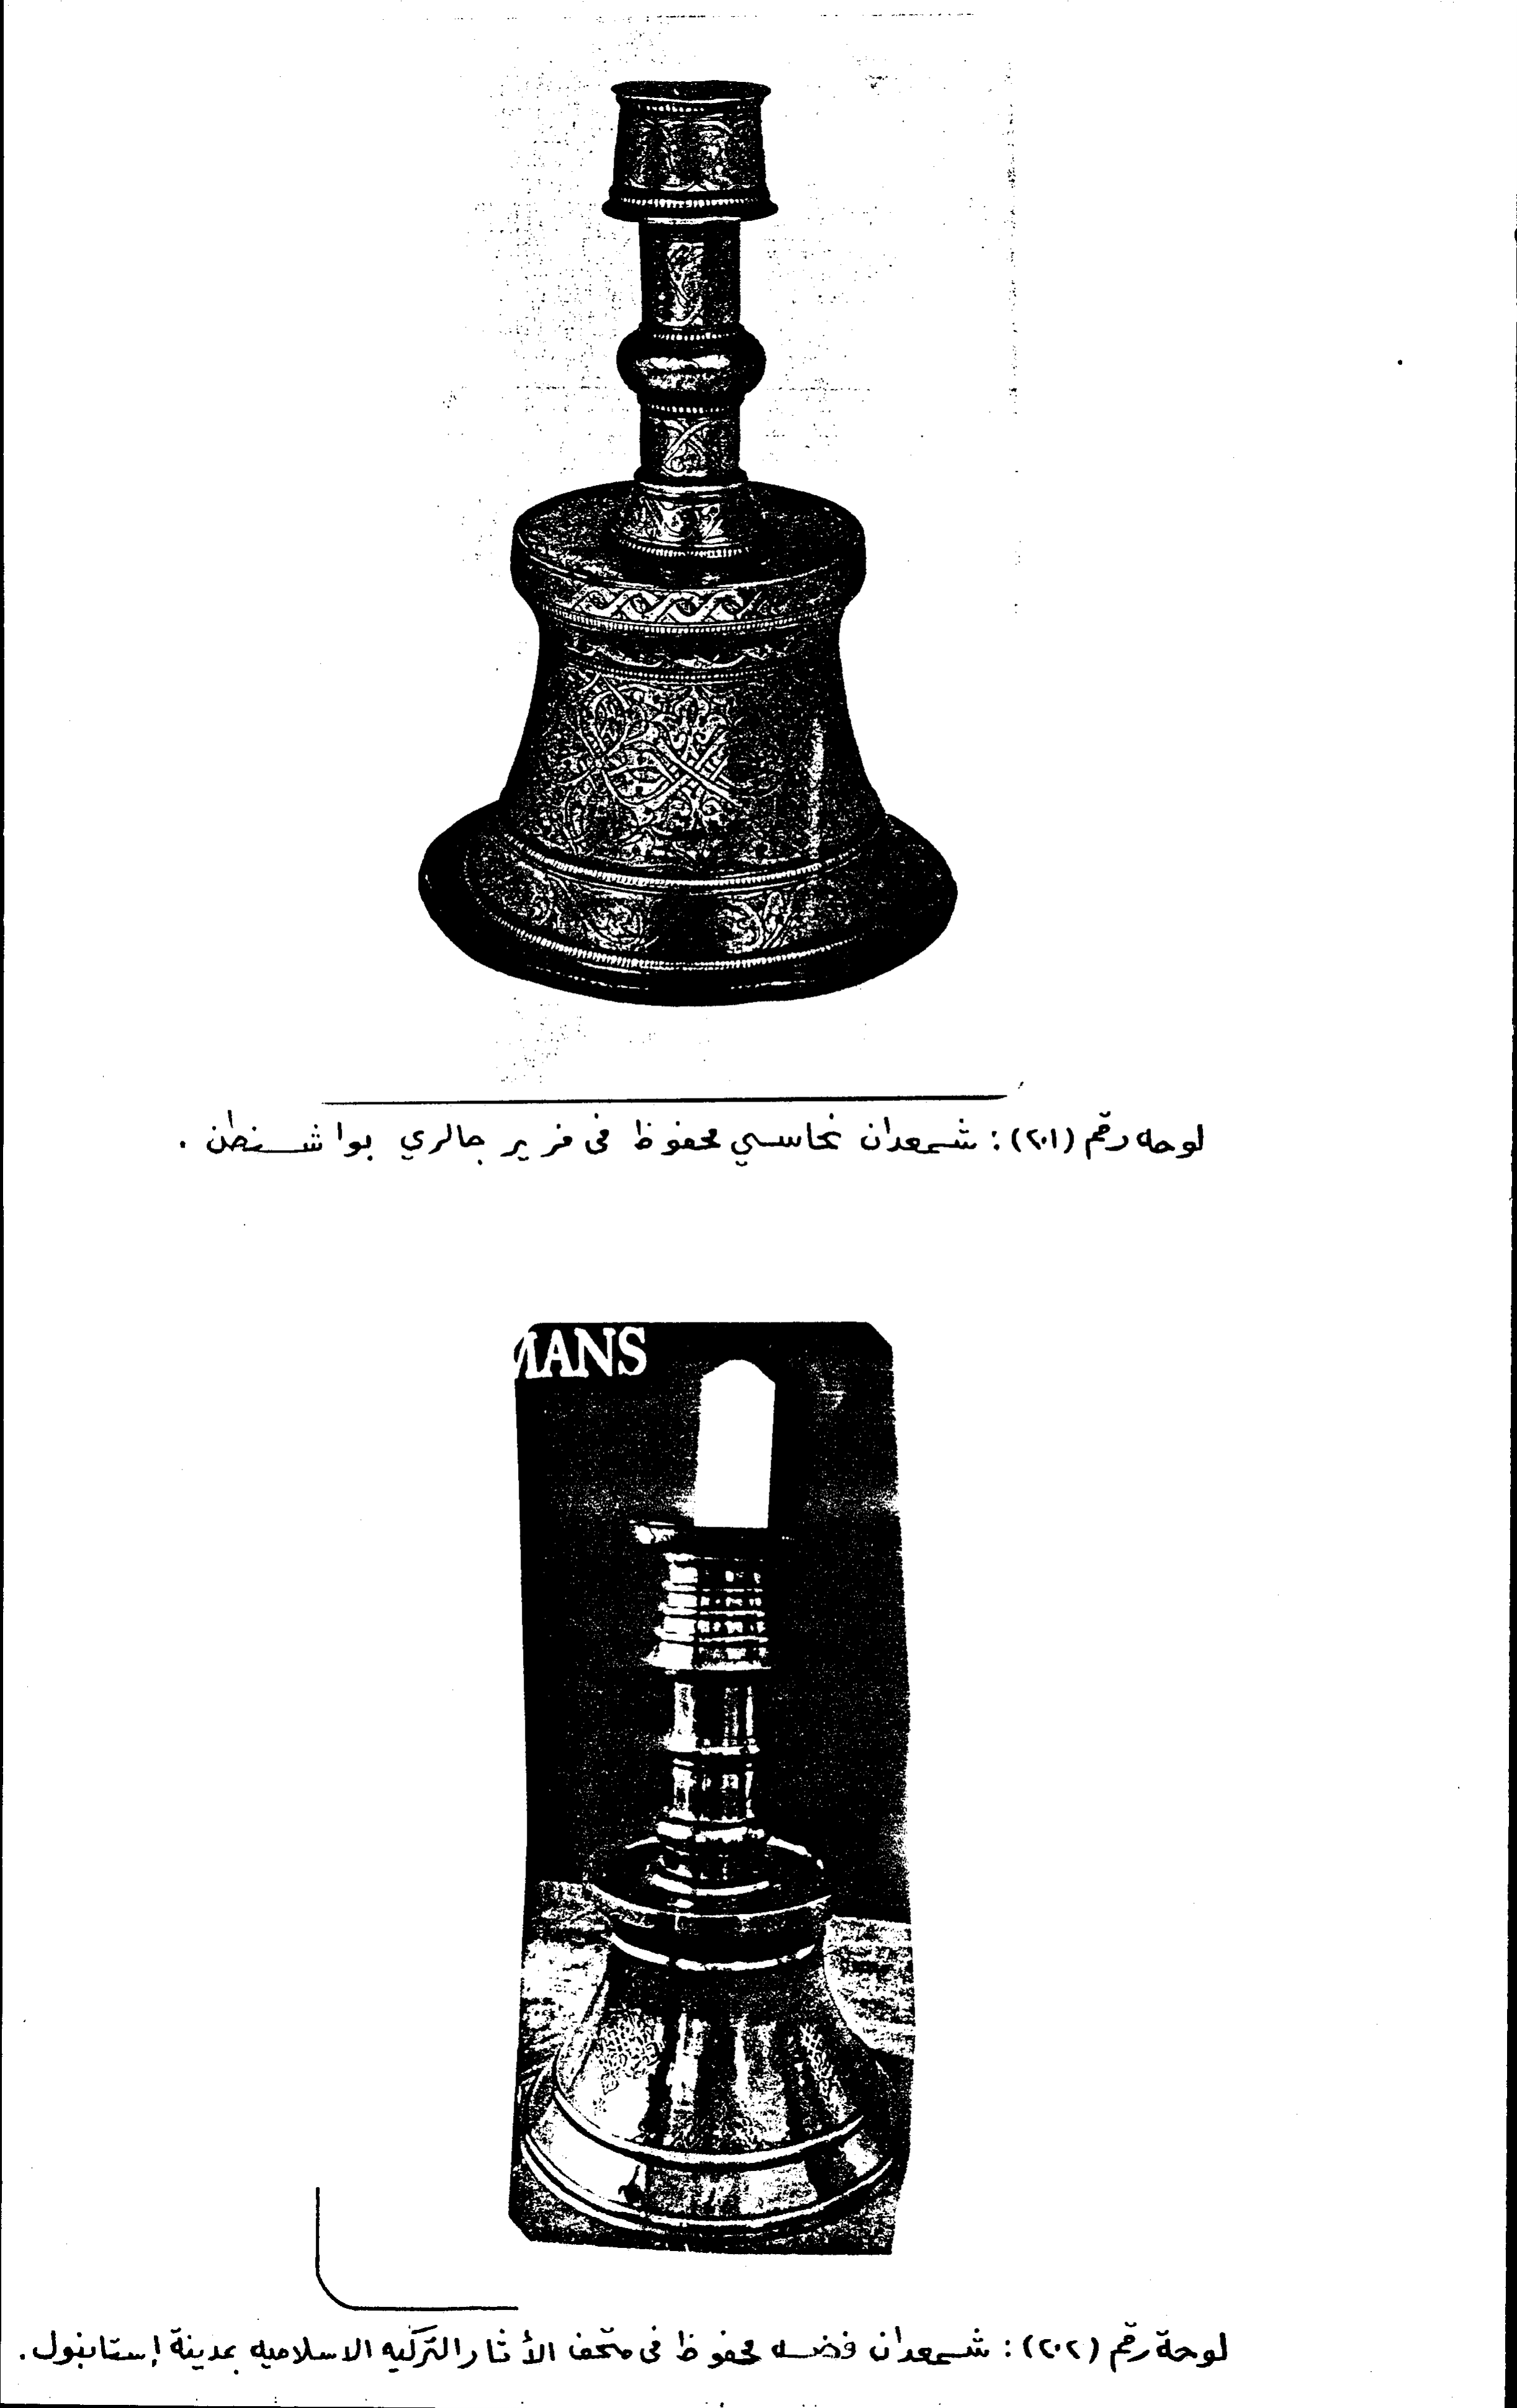 لوحه رقم (٢٠١) : شمعدان نحاسي محفوظ فى فرير جالري بواشنطن .
MANS
لوحة رقم (٢٠٢) : شمعدان فضه محفوظ فى متحف الأثار التركيه الاسلاميه بمدينة إستانبول .